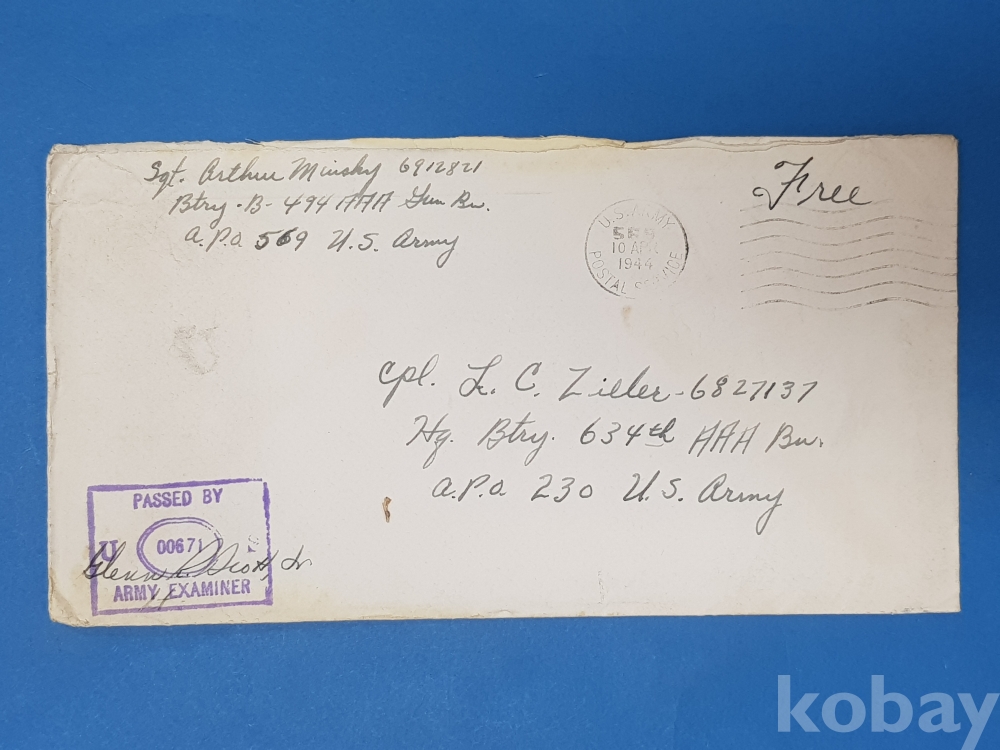 Sgt. Arthur Minsky 6912821
Btry-B-494 AAA Gun Bn.
A.P.O. 569 U.S. Army
Free
U.S. ARMY
10 APR
1944
POSTAL SERVICE
Cpl. L. C. Ziller-6827137
Hq. Btry. 634th AAA Bn.
A.P.O. 230 U.S. Army
PASSED BY
U
00671
ARMY EXAMINER
kobay